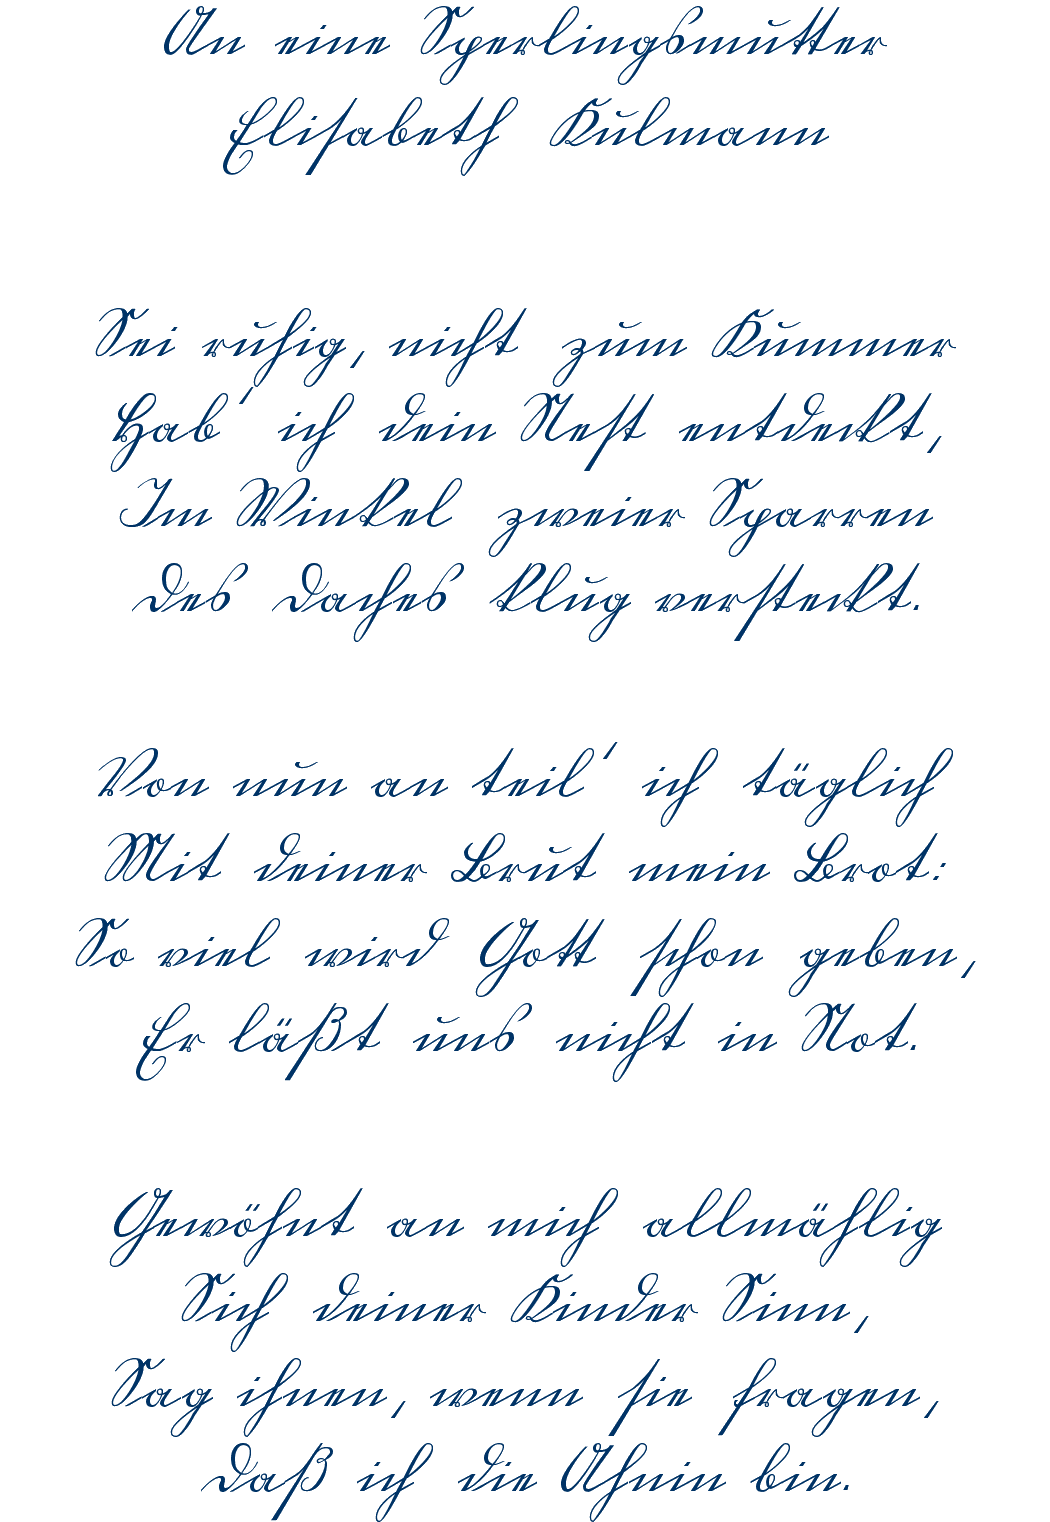 An eine Sperlingsmutter
Elisabeth Kulmann
Sei ruhig, nicht zum Kummer
Hab' ich dein Nest entdeckt,
Im Winkel zweier Sparren
Des Daches klug versteckt.
Von nun an teil' ich täglich
Mit deiner Brut mein Brot:
So viel wird Gott schon geben,
Er läßt uns nicht in Not.
Gewöhnt an mich allmählig
Sich deiner Kinder Sinn,
Sag ihnen, wenn sie fragen,
Daß ich die Ahnin bin.